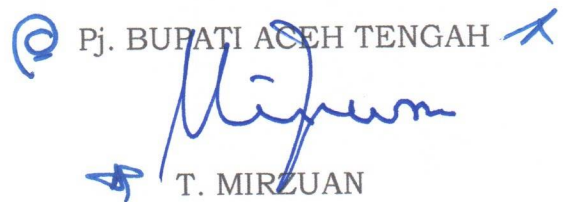 Pj. BUPATI ACEH TENGAH
T. MIRZUAN